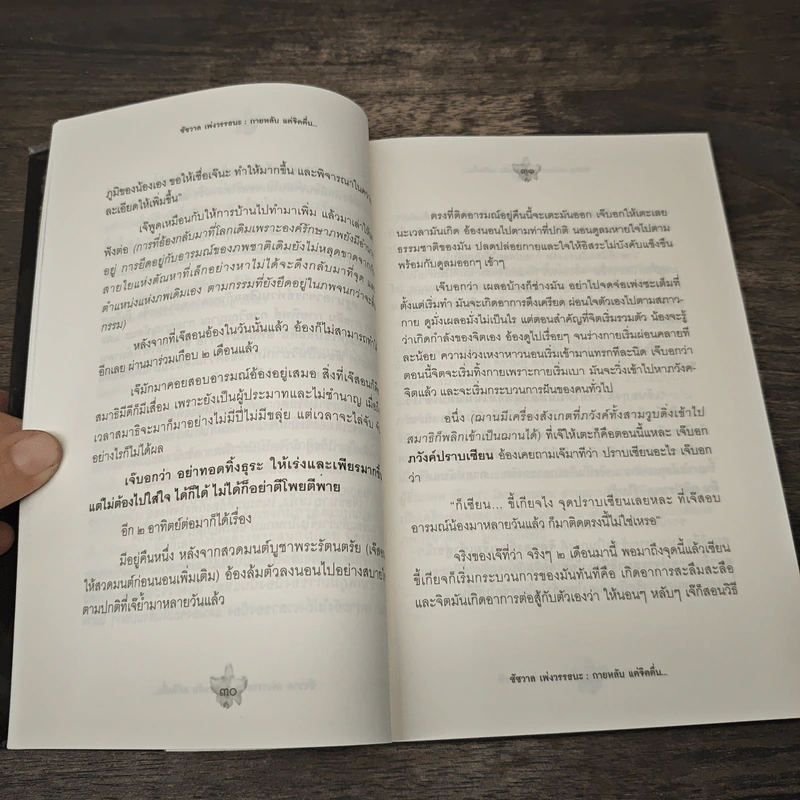 ชัชวาล เพ่งวรรธนะ : กายหลับ แต่จิตตื่น...
ภูมิของน้องเอง ขอให้เชื่อเจ๊นะ ทำให้มากขึ้น และพิจารณาใน
ละเอียดให้เพิ่มขึ้น"
เจ๊พูดเหมือนกับให้การบ้านไปทำมาเพิ่ม แล้วมาเล่าให้
ฟังต่อ (การที่อ้องกลับมาที่โลกเดิมเพราะองค์รักษาภพยังมี
อยู่ การยึดอยู่กับอารมณ์ของภพชาติเดิมยังไม่หลุดขาดจาก
สายใยแห่งตัณหาที่เล็กอย่างหาไม่ได้จะดึงกลับมาที่จุด
ตำแหน่งแห่งภพเดิมเอง ตามกรรมที่ยังยึดอยู่ในภพจนกว่าจะ
กรรม)
หลังจากที่เจ๊สอนอ้องในวันนั้นแล้ว อ้องก็ไม่สามารถ
อีกเลย ผ่านมาร่วมเกือบ ๒ เดือนแล้ว
เจ๊มักมาคอยสอบอารมณ์อ้องอยู่เสมอ สิ่งที่เจ๊สอนก็
สมาธิมีดีก็มีเสื่อม เพราะยังเป็นผู้ประมาทและไม่ชำนาญ เมื่อ
เวลาสมาธิจะมาก็มาอย่างไม่มีปี่ไม่มีขลุ่ย แต่เวลาจะไล่จับ
อย่างไรก็ไม่ได้ผล
เจ๊บอกว่า อย่าทอดทิ้งธุระ ให้เร่งและเพียรมากขึ้น
แต่ไม่ต้องไปใส่ใจ ได้ก็ได้ ไม่ได้ก็อย่าตีโพยตีพาย
อีก ๒ อาทิตย์ต่อมาก็ได้เรื่อง
มีอยู่คืนหนึ่ง หลังจากสวดมนต์บูชาพระรัตนตรัย (เจ๊สอน
ให้สวดมนต์ก่อนนอนเพิ่มเติม) อ้องล้มตัวลงนอนไปอย่างสบาย
ตามปกติที่เจ๊ย้ำมาหลายวันแล้ว
๓๐
๓๑
ตรงที่ติดอารมณ์อยู่คืนนี้จะเตะมันออก เจ๊บอกให้เตะเลย
นะเวลามันเกิด อ้องนอนไปตามท่าที่ปกติ นอนดูลมหายใจไปตาม
ธรรมชาติของมัน ปลดปล่อยกายและใจให้อิสระไม่บังคับแข็งขืน
พร้อมกับดูลมออกๆ เข้าๆ
เจ๊บอกว่า เผลอบ้างก็ช่างมัน อย่าไปจดจ่อเพ่งซะเต็มที่
ตั้งแต่เริ่มทำ มันจะเกิดอาการตึงเครียด ผ่อนใจตัวเองไปตามสภาวะ-
กาย ดูมั่งเผลอมั่งไม่เป็นไร แต่ตอนสำคัญที่จิตเริ่มรวมตัว น้องจะรู้
ว่าเกิดกำลังของจิตเอง อ้องดูไปเรื่อยๆ จนร่างกายเริ่มผ่อนคลายที
ละน้อย ความง่วงเหงาหาวนอนเริ่มเข้ามาแทรกทีละนิด เจ๊บอกว่า
ตอนนี้จิตจะเริ่มทิ้งกายเพราะกายเริ่มเบา มันจะวิ่งเข้าไปหาภวังค-
จิตแล้ว และจะเริ่มกระบวนการฝันของคนทั่วไป
อนึ่ง (ฌานมีเครื่องสังเกตที่ภวังค์ทั้งสามวูบดิ่งเข้าไป
สมาธิก็พลิกเข้าเป็นฌานได้) ที่เจ๊ให้เตะก็คือตอนนี้แหละ เจ๊บอก
ภวังค์ปราบเซียน อ้องเคยถามเจ๊มาทีว่า ปราบเซียนอะไร เจ๊บอก
ว่า
"ก็เซียน... ขี้เกียจไง จุดปราบเซียนเลยหละ ที่เจ๊สอบ
อารมณ์น้องมาหลายวันแล้ว ก็มาติดตรงนี้ไม่ใช่เหรอ"
จริงของเจ๊ที่ว่า จริงๆ ๒ เดือนมานี้ พอมาถึงจุดนี้แล้วเซียน
ขี้เกียจก็เริ่มกระบวนการของมันทันทีคือ เกิดอาการสะลึมสะลือ
และจิตมันเกิดอาการต่อสู้กับตัวเองว่า ให้นอนๆ หลับๆ เจ๊ก็สอนวิธี
ชัชวาล เพ่งวรรธนะ : กายหลับ แต่จิตตื่น...